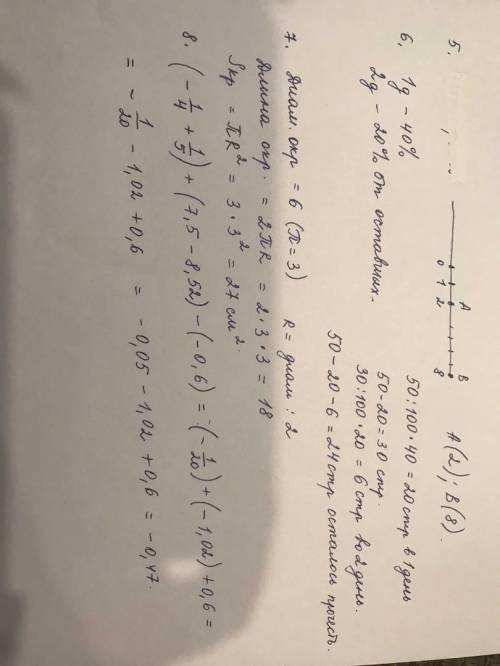 5.
A B
0 1 2 8
A(2); B(8).
6. 1д – 40%
2д – 20% от оставших.
50:100·40 = 20 стр в 1 день
50-20 = 30 стр.
30:100·20 = 6 стр во 2 день.
50-20-6 = 24 стр осталось прочесть.
7. Диам. окр = 6 (π=3) R = диам : 2
Длина окр. = 2πR = 2·3·3 = 18
Sкр = πR² = 3·3² = 27 см².
8. (-1/4 + 1/5) + (7,5 - 8,52) - (-0,6) = (-1/20) + (-1,02) + 0,6 =
= -1/20 - 1,02 + 0,6 = -0,05 - 1,02 + 0,6 = -0,47.